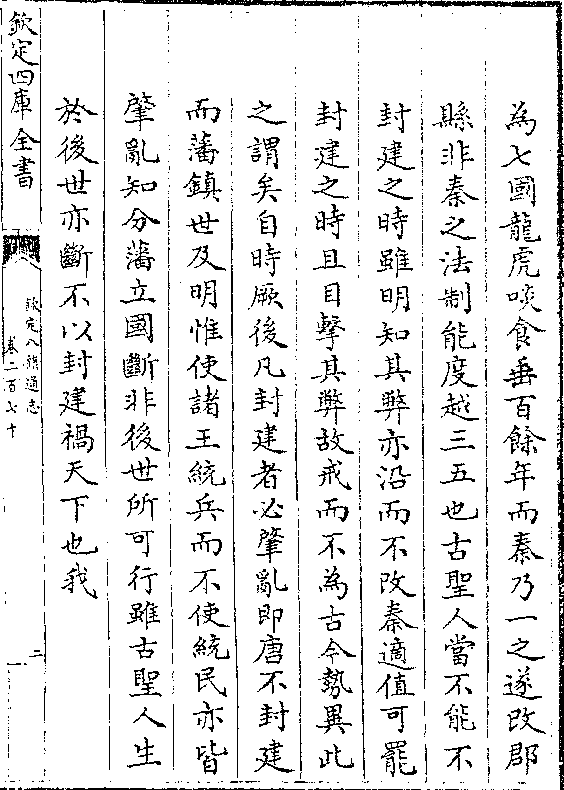 為七國龍虎啖食垂百餘年而秦乃一之遂改郡
縣非秦之法制能度越三五也古聖人當不能不
封建之時雖明知其弊亦沿而不改秦適值可罷
封建之時且目擊其弊故戒而不為古今勢異此
之謂矣自時厥後凡封建者必肇亂即唐不封建
而藩鎮世及明惟使諸王統兵而不使統民亦皆
肇亂知分藩立國斷非後世所可行雖古聖人生
於後世亦斷不以封建禍天下也我
欽定四庫全書
欽定八旗通志
卷二百七十
二